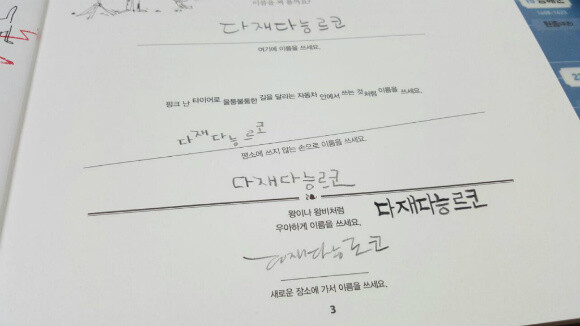 다재다능르코
여기에 이름을 쓰세요.
펑크 난 타이어로 울퉁불퉁한 길을 달리는 자동차 안에서 쓰는 것처럼 이름을 쓰세요.
다재다능르코
평소에 쓰지 않는 손으로 이름을 쓰세요.
다재다능르코
왕이나 왕비처럼
우아하게 이름을 쓰세요.
다재다능르코
다재다능르코
새로운 장소에 가서 이름을 쓰세요.
3